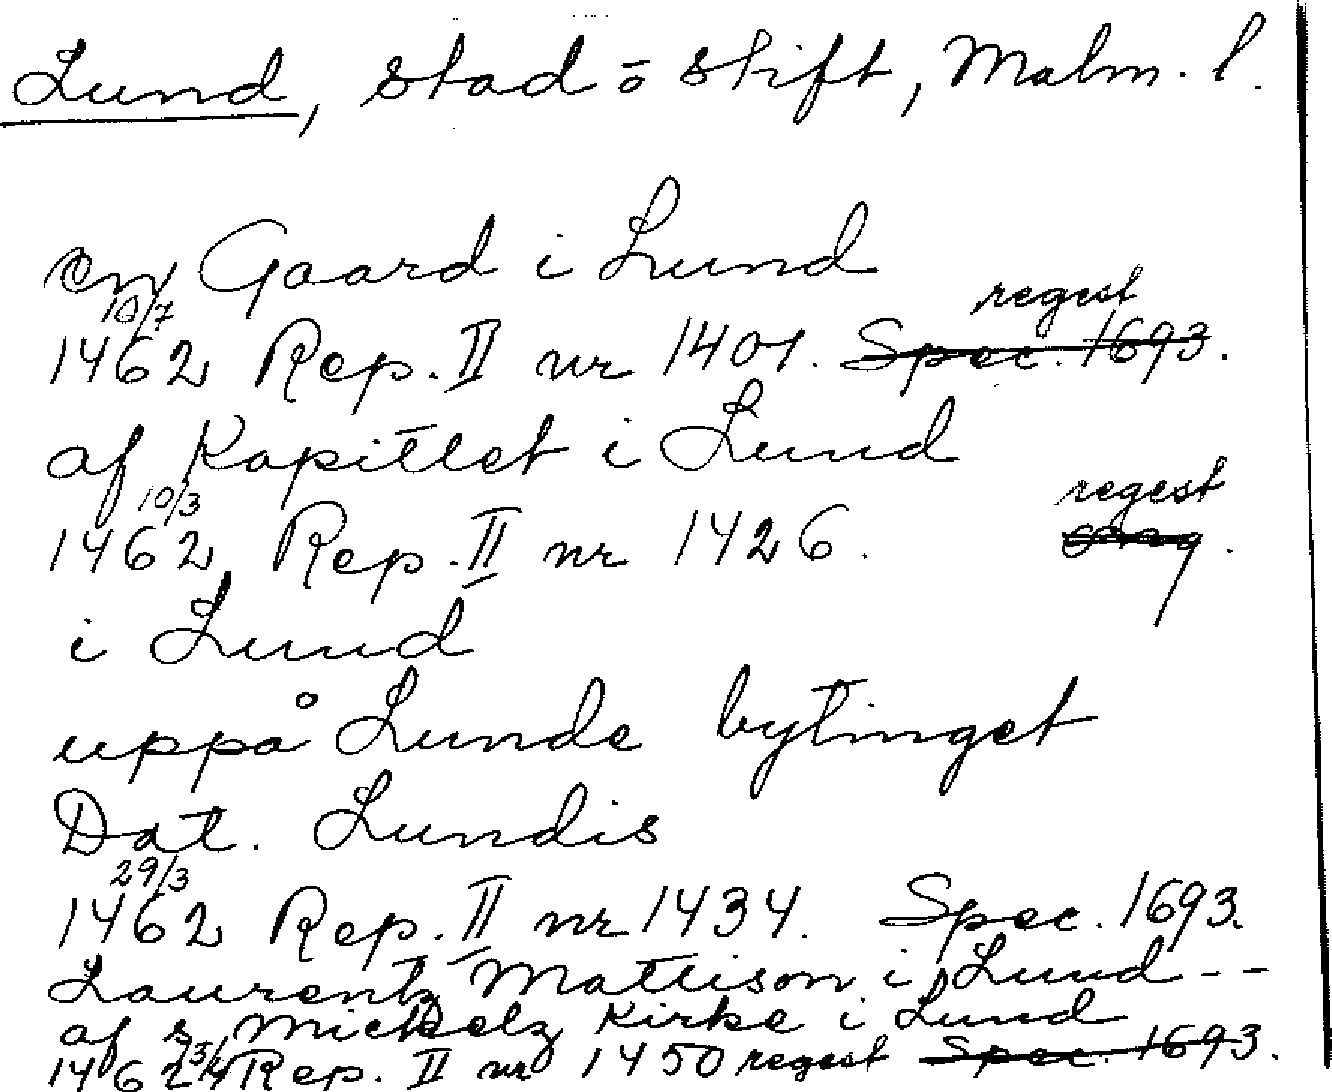 Lund, stad o stift, Malm. l.
en Gaard i Lund
10/7 regest
1462 Rep. II nr 1401. Spec. 1693.
af Kapitlet i Lund
10/3 regest
1462 Rep. II nr 1426.
i Lund
uppå Lunde bytinget
Dat. Lundis
29/3
1462 Rep. II nr 1434. Spec. 1693.
Laurentz Mattison i Lund --
af s. Mickelz Kirke i Lund
1462 Rep. II nr 1450 regest Spec. 1693.